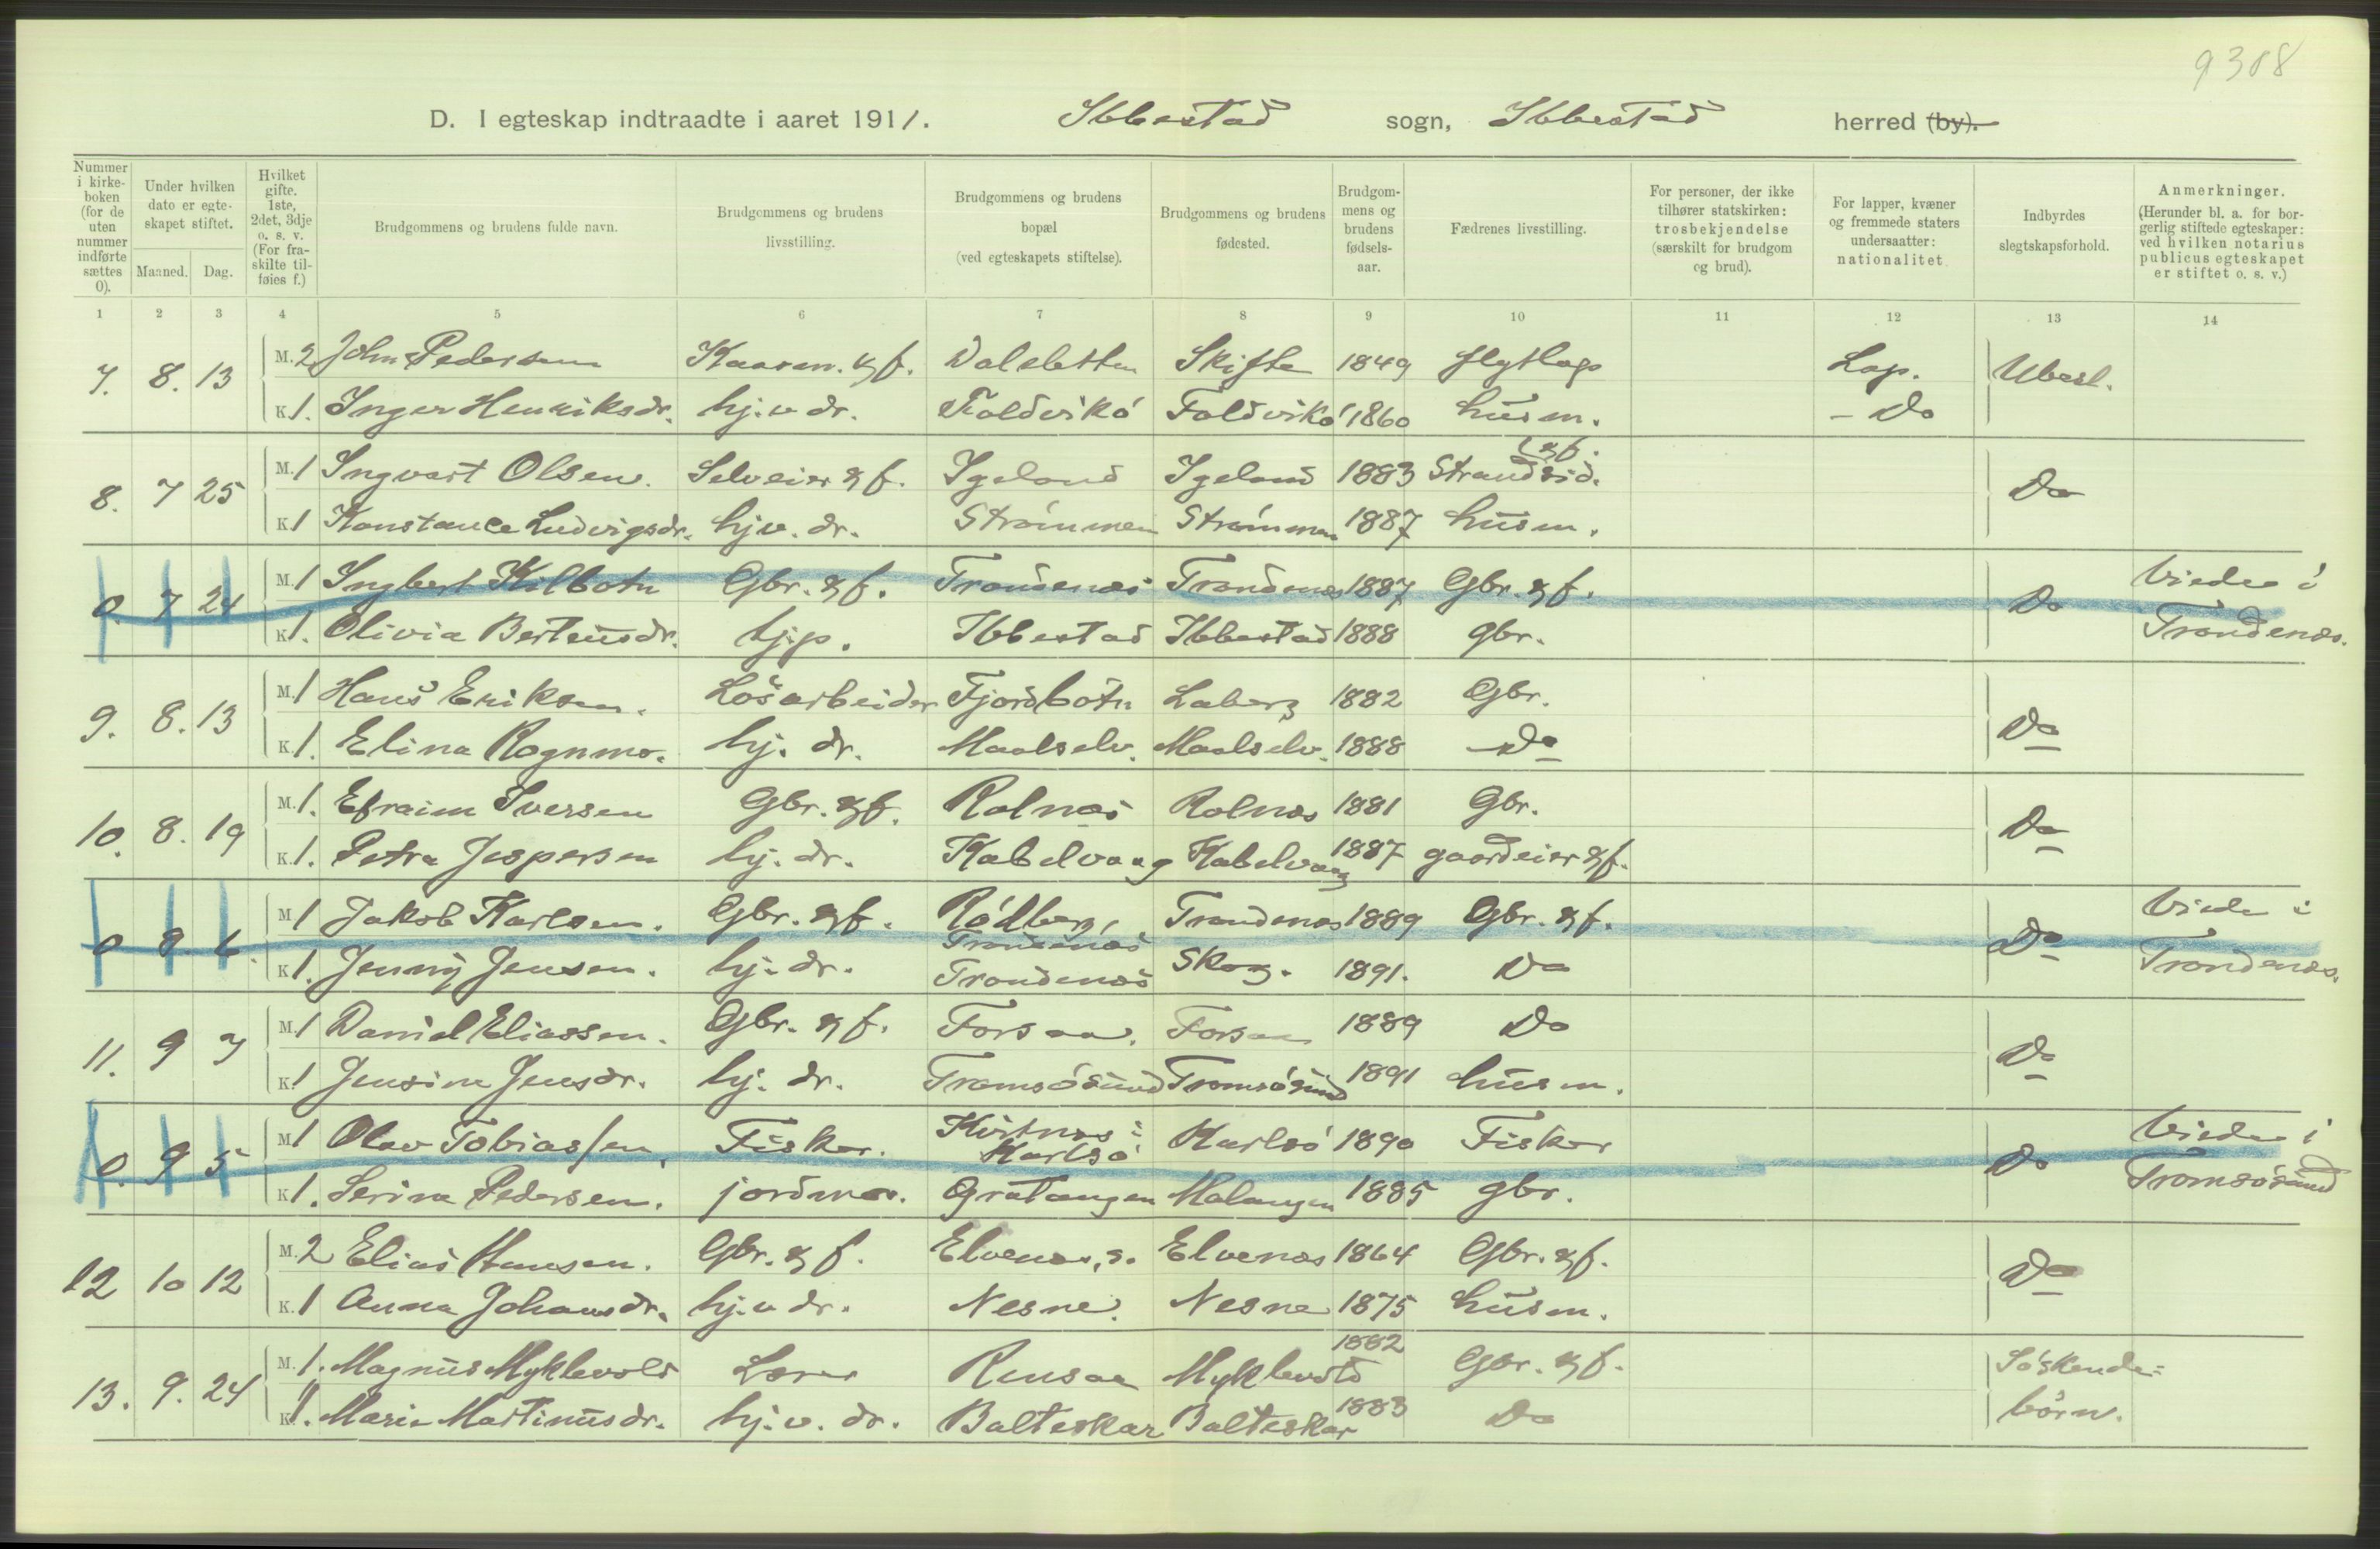 9308
D. I egteskap indtraadte i aaret 1911. Ibbestad sogn, Ibbestad herred (by).
Nummer i kirke-boken (for de uten nummer indførte sættes 0).
Under hvilken dato er egte-skapet stiftet.
Maaned. Dag.
Hvilket gifte. 1ste, 2det, 3dje o. s. v. (For fra-skilte til-føies f.)
Brudgommens og brudens fulde navn.
Brudgommens og brudens livsstilling.
Brudgommens og brudens bopæl (ved egteskapets stiftelse).
Brudgommens og brudens fødested.
Brudgom-mens og brudens fødsels-aar.
Fædrenes livsstilling.
For personer, der ikke tilhører statskirken: trosbekjendelse (særskilt for brudgom og brud).
For lapper, kvæner og fremmede staters undersaatter: nationalitet
Indbyrdes slegtskapsforhold.
Anmerkninger. (Herunder bl. a. for bor-gerlig stiftede egteskaper: ved hvilken notarius publicus egteskapet er stiftet o. s. v.)
1 2 3 4 5 6 7 8 9 10 11 12 13 14
7. 8. 13 M. 2 John Pedersen Kaarm. & f. Dalsletten Skifte 1849 flytlap Lap. Ubesl.
K 1. Inger Henriksdr. hj. v. dr. Foldvikø Foldvikø 1860 husm. - Do
8. 7 25 M. 1 Ingvart Olsen. Selveier & f. Igeland Igeland 1883 Strandsid. & f. Do
K 1 Konstance Ludvigsdr. hj v. dr. Strømmen Strømmen 1887 husm.
0. 7 24 M. 1 Ingbert Kilbotn Gbr. & f. Trondenæs Trondenæs 1887 Gbr. & f. Do Viede i
K 1. Olivia Berteusdr. hjp. Ibbestad Ibbestad 1888 gbr. Trondenæs.
9. 8. 13 M. 1 Hans Eriksen. Løsarbeider Fjordbotn Laberg 1882 Gbr. Do
K. 1. Elina Rognmo. hj. dr. Maalselv. Maalselv. 1888 Do
10. 8. 19 M. 1. Efraim Iversen Gbr. & f. Rolnæs Rolnæs 1881 Gbr. Do
K. 1. Petra Jespersen hj. dr. Kabelvaag Kabelvaag 1887 gaardeier & f.
0 8 6. M 1 Jakob Karlsen. Gbr. & f. Rødberg, Trondenæs Trondenæs 1889 Gbr. & f. Do Viede i
K 1. Jenny Jensen. hj. dr. Trondenæs Skog. 1891. Do Trondenæs.
11. 9 7 M. 1 Daniel Eliassen. Gbr. & f. Forsaa. Forsaa 1889 Do Do
K 1 Jensine Jensdr. hj. dr. Tromsøsund Tromsøsund 1891 husm.
0. 9 5 M 1 Olav Tobiassen. Fisker. Kvitnes i Karlsø Karlsø 1890 Fisker Do Viede i
K 1. Serina Pedersen. jordmor. Gratangen Malangen 1885 gbr. Tromsøsund
12 10 12 M. 2 Elias Hansen. Gbr. & f. Elvenæs, S. Elvenæs 1864 Gbr. & f. Do
K. 1 Anna Johansdr. hj. v dr. Nesne. Nesne 1875 husm.
13. 9. 24 M. 1. Magnus Myklevold Lærer Rensaa Myklevold 1882 Gbr. & f. Søskende=
K 1. Marie Martinusdr. hj. v. dr. Balteskar Balteskar 1883 Do børn.